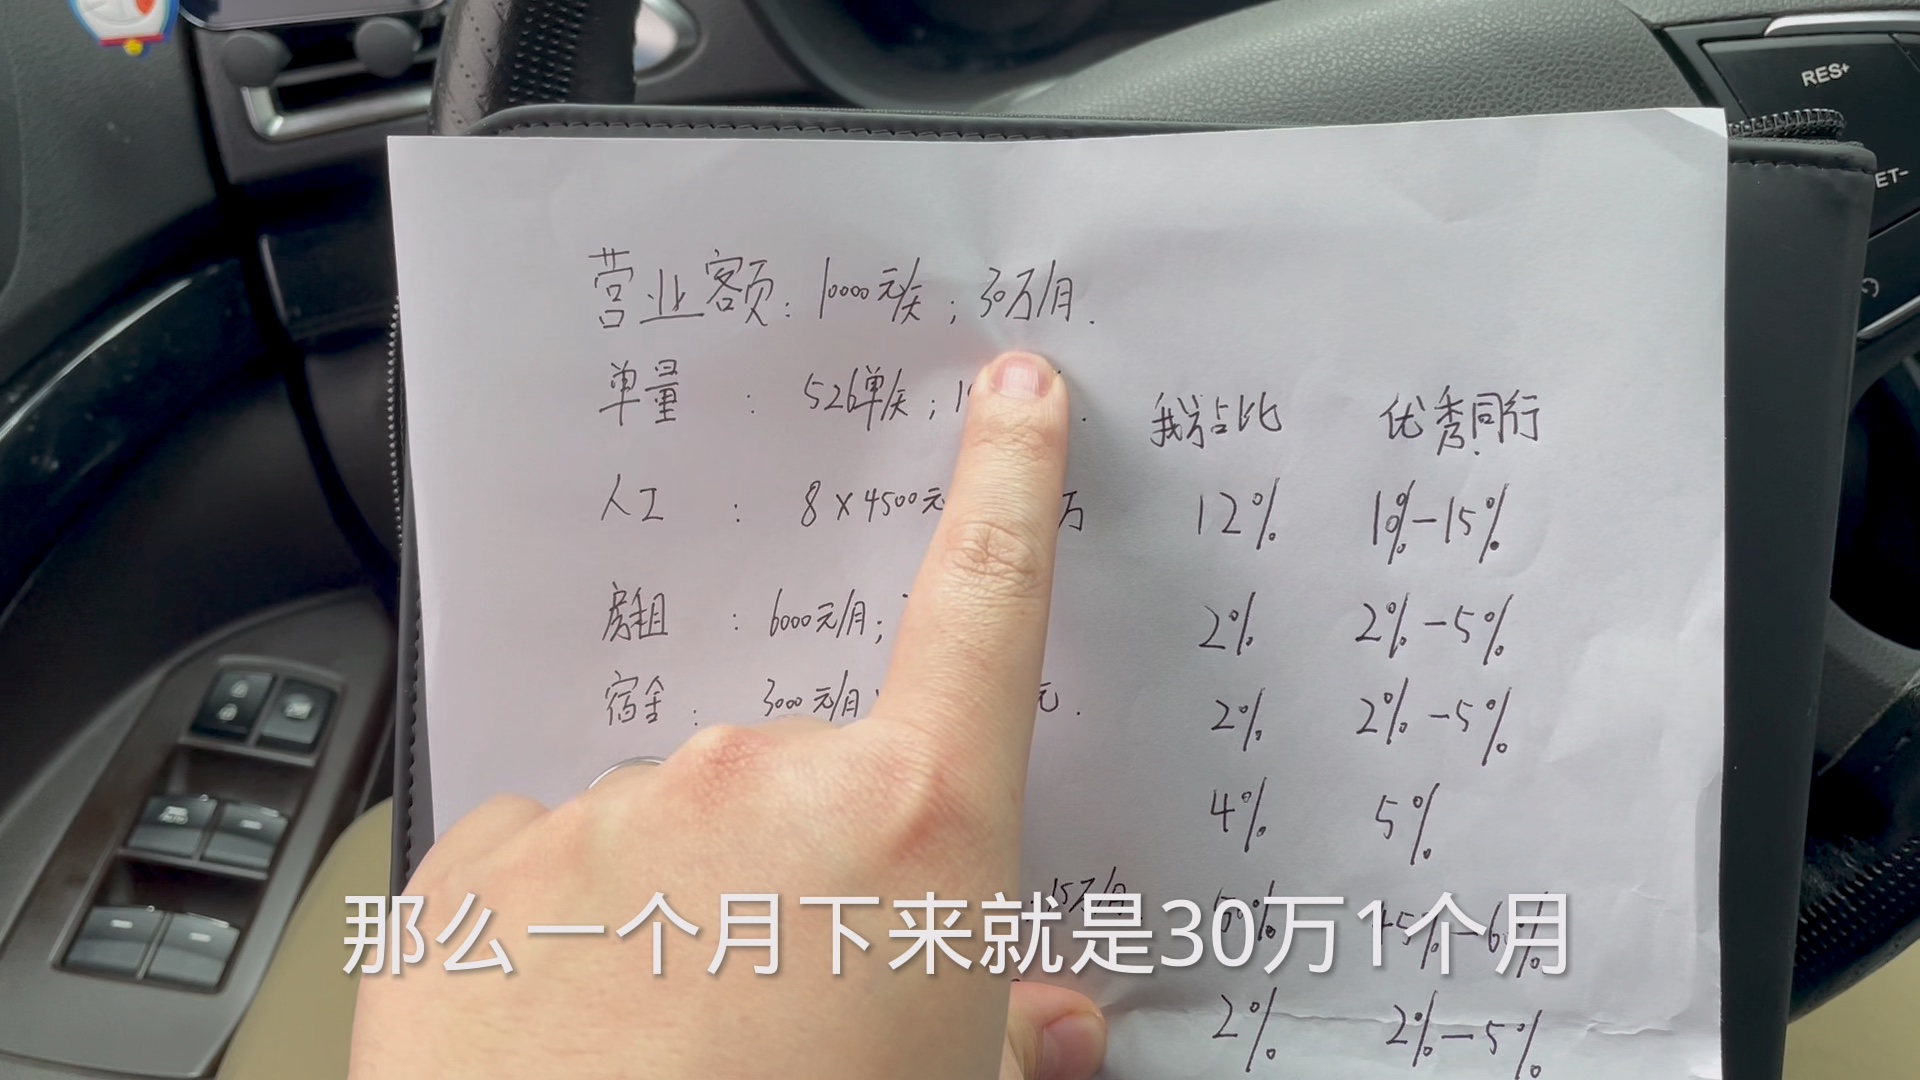 RES+
ET-
营业额：10000元/天；30万/月.
单量：526单/天；1
我占比 优秀同行
人工：8×4500元 万 12% 10%-15%
房租：6000元/月； 2% 2%-5%
宿舍：3000元/月 元. 2% 2%-5%
4% 5%
15万/月 50% 45%-60%
那么一个月下来就是30万1个月
2% 2%-5%